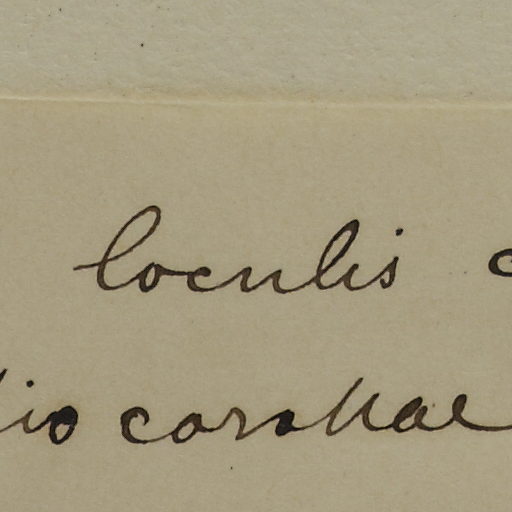 loculis
corollae